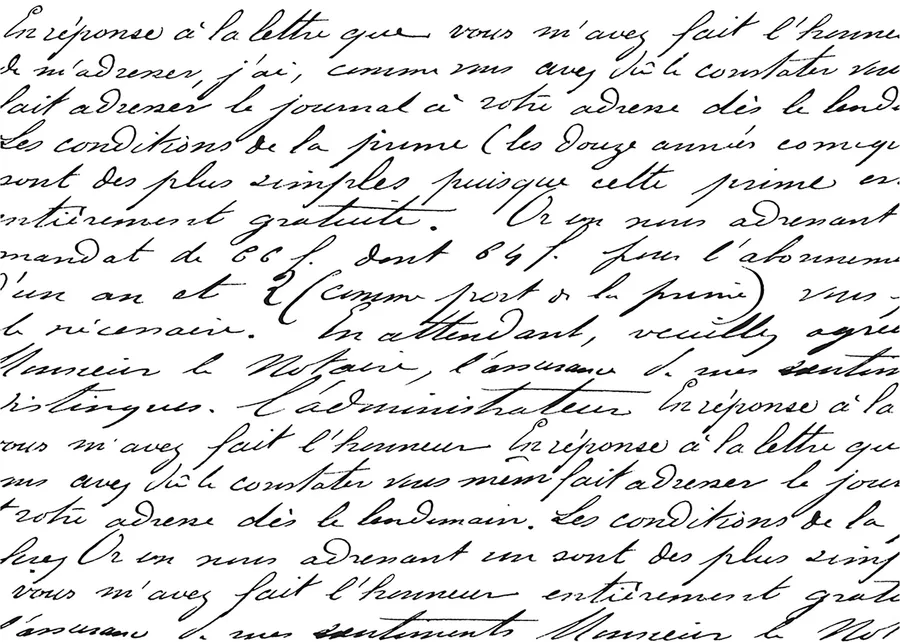 En réponse à la lettre que vous m'avez fait l'honne
de m'adresser, j'ai, comme vous avez dû le constater vou
fait adresser le journal à votre adresse dès le lende
Les conditions de la prime (les douze années comiqu
sont des plus simples puisque cette prime es
entièrement gratuite. Or en nous adressant
mandat de 66 f. dont 64 f. pour l'abonneme
d'un an et 2 (comme port de la prime) vous
le nécessaire. En attendant, veuillez agrée
Monsieur le Notaire, l'assurance de mes sentim
distingués. L'administrateur En réponse à la
vous m'avez fait l'honneur En réponse à la lettre qu
ous avez dû le constater vous mêm fait adresser le jour
votre adresse dès le lendemain. Les conditions de la
Or en nous adressant un sont des plus simp
vous m'avez fait l'honneur entièrement grat
l'assurance de mes sentiments Monsieur le Not